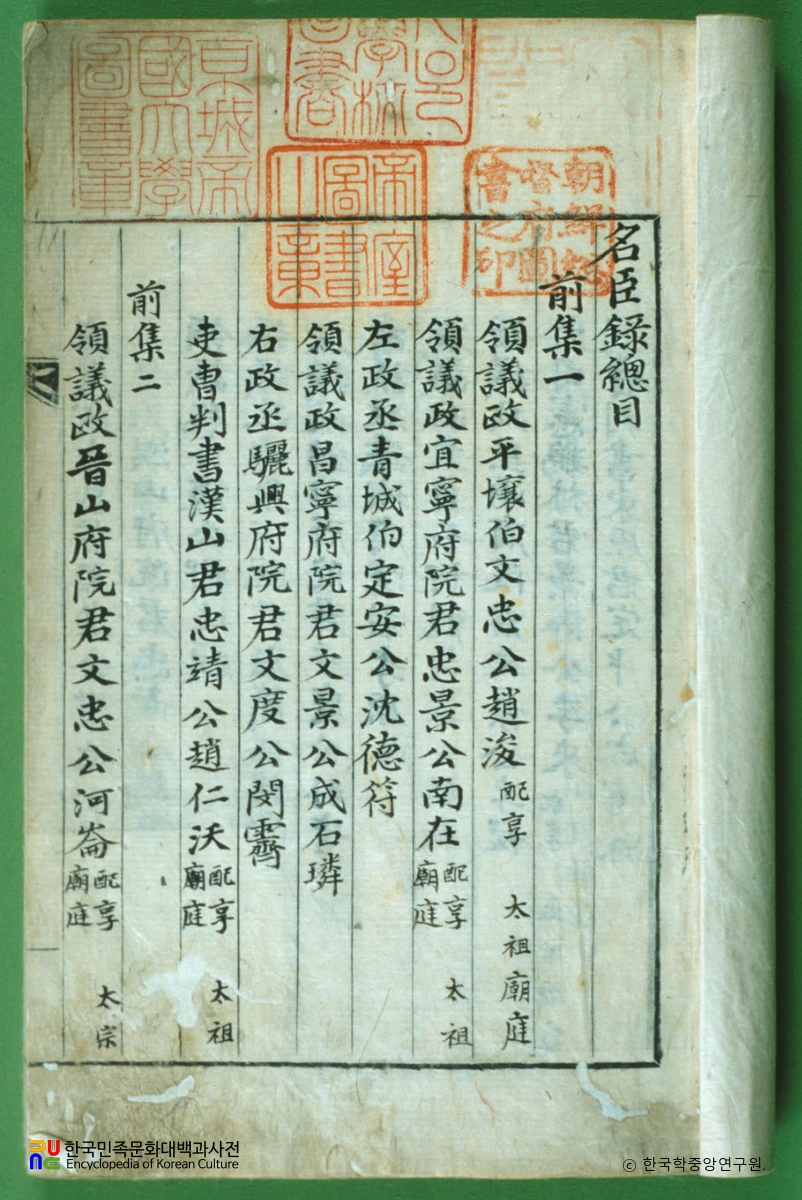 名臣錄總目
前集一
領議政平壤伯文忠公趙浚 配享 太祖廟庭
領議政宜寧府院君忠景公南在 配享 太祖廟庭
左政丞青城伯定安公沈德符
領議政昌寧府院君文景公成石璘
右政丞驪興府院君文度公閔霽
吏曹判書漢山君忠靖公趙仁沃 配享 太祖廟庭
前集二
領議政晉山府院君文忠公河崙 配享 太宗廟庭
京城帝
國大學
圖書章
帝室
圖書
之章
朝鮮總
督府圖
書之印
學校
圖書
한국민족문화대백과사전
Encyclopedia of Korean Culture
© 한국학중앙연구원.